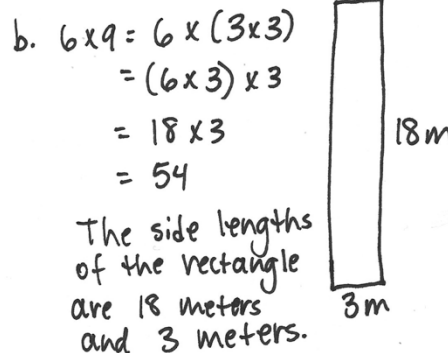 b. 6x9 = 6 x (3x3)
= (6x3) x 3
= 18 x 3
= 54
18m
The side lengths
of the rectangle
are 18 meters
and 3 meters.
3m